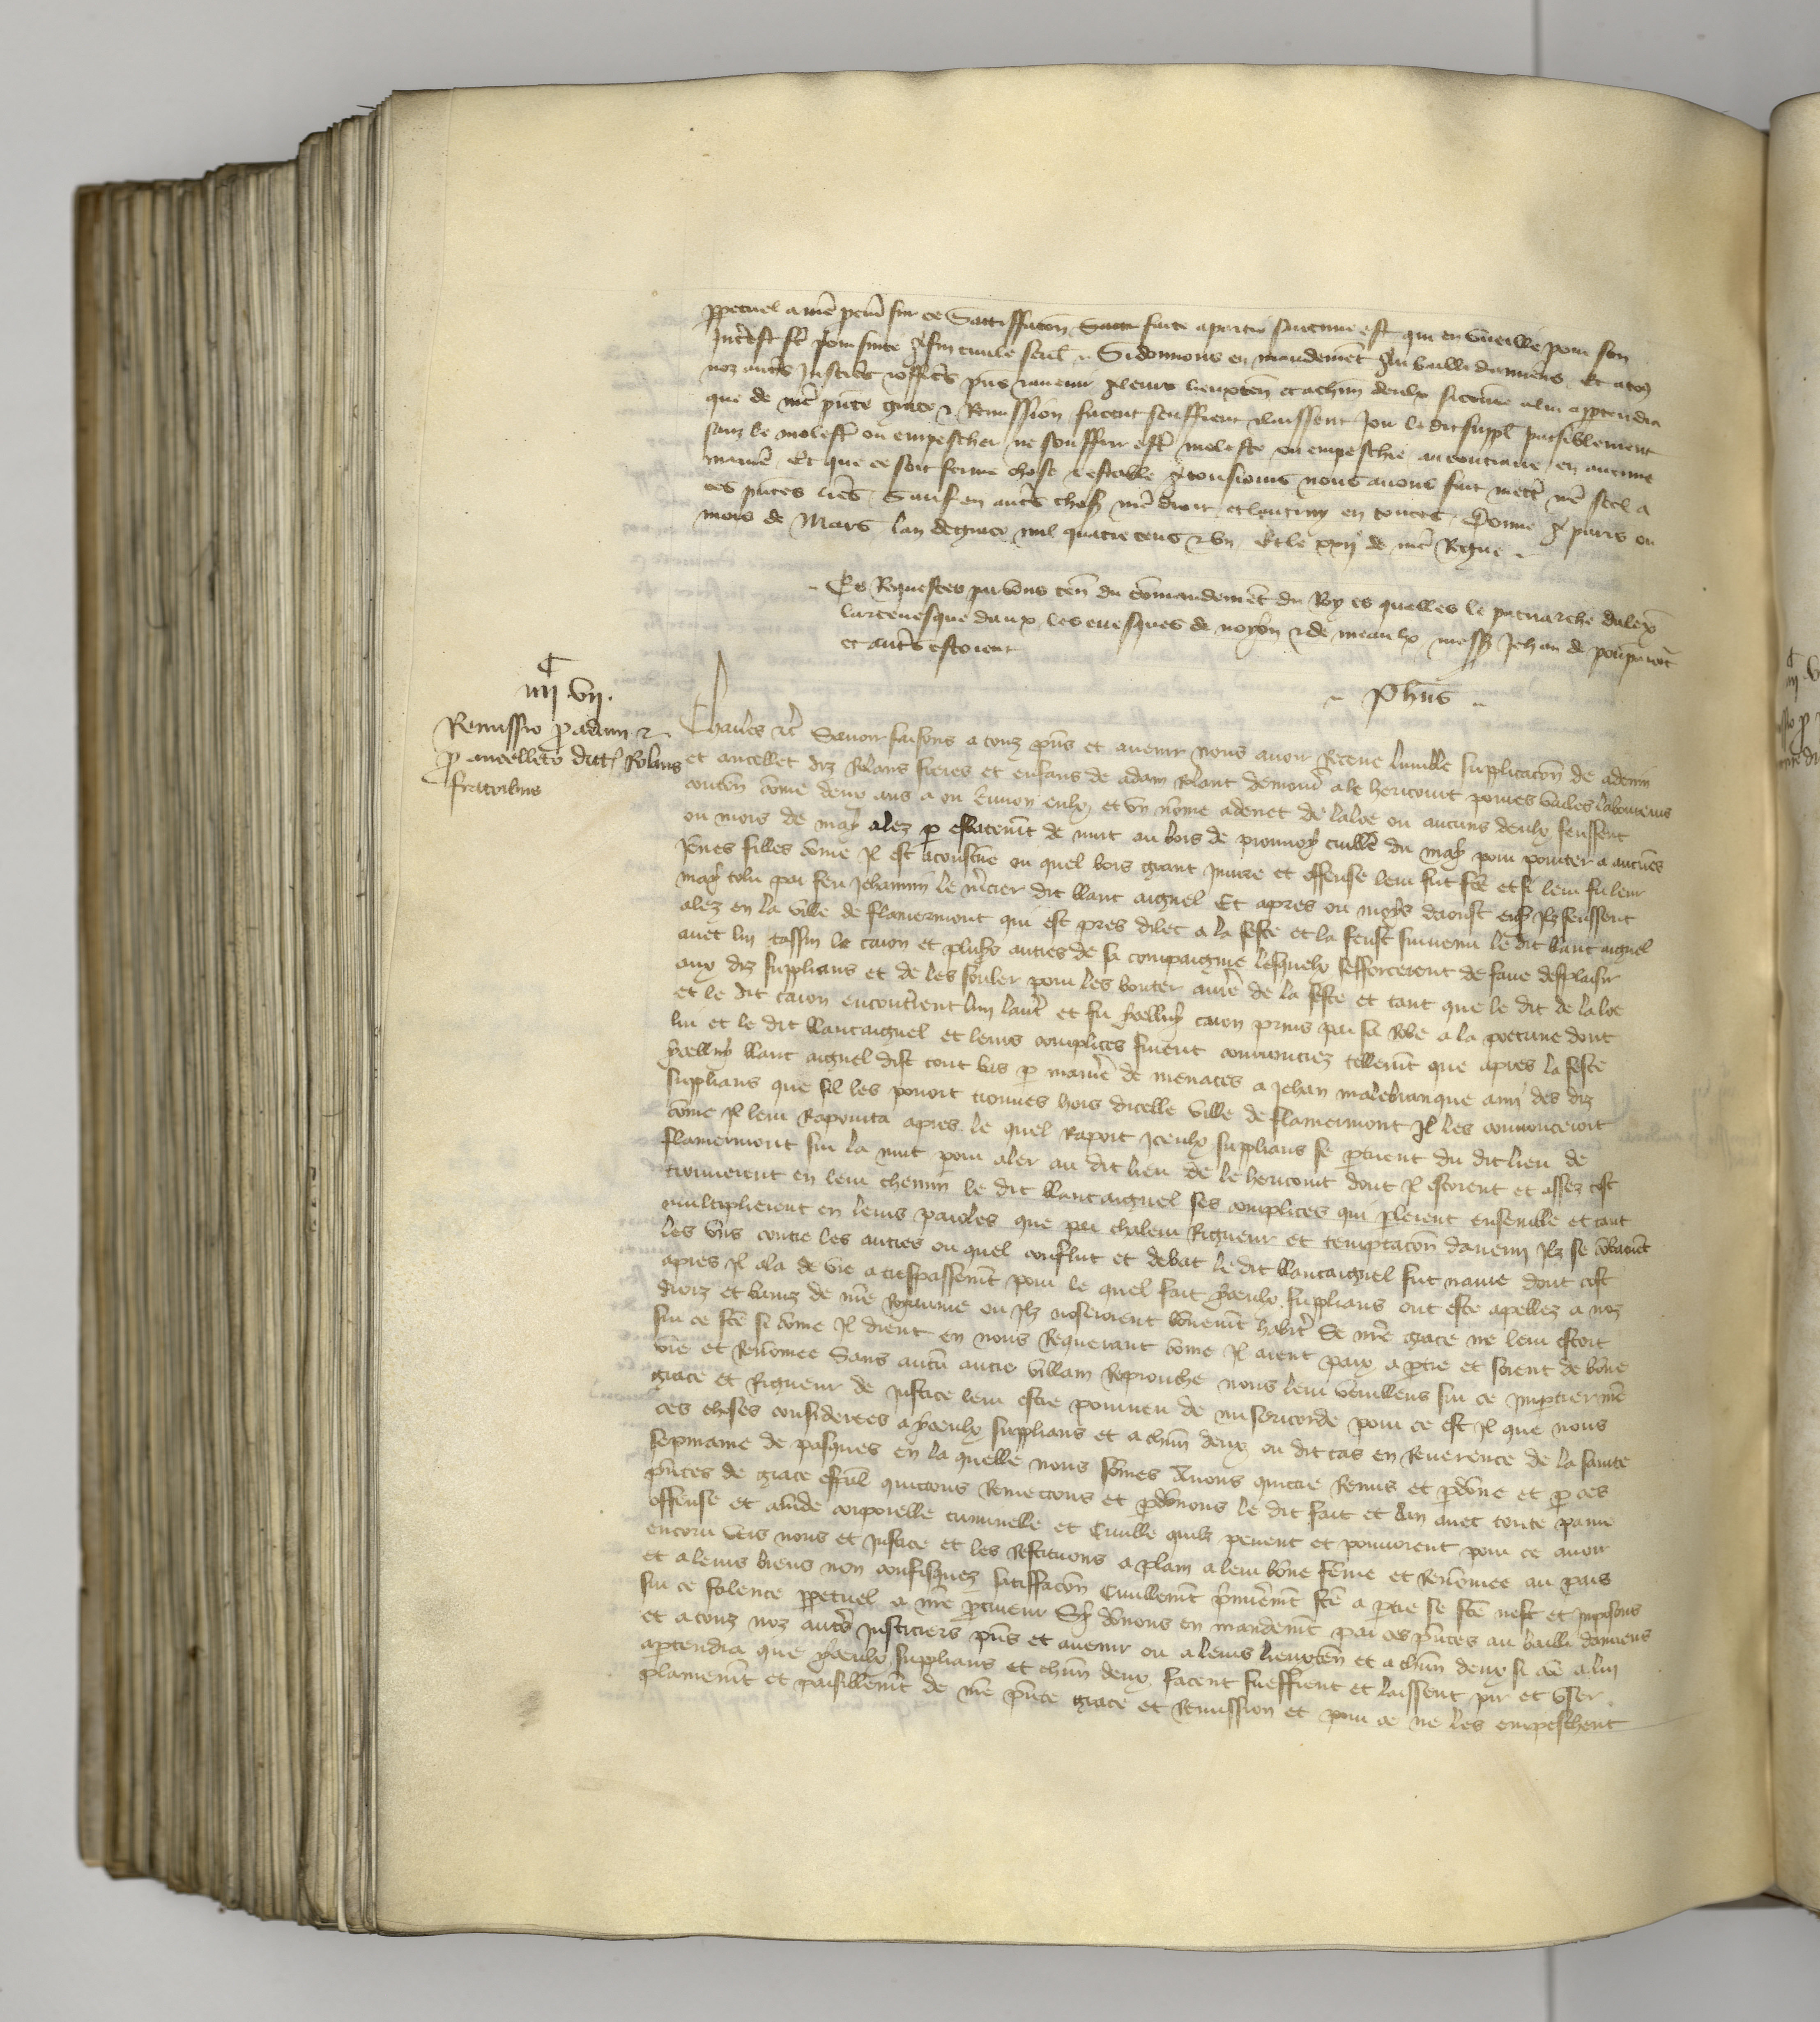 ppetuel a nrē pcur̄ sur ce Sattiffacōn Sattē faicte a partie saucune est qui en vueille pour son
Intēst fēr poursuite Afin civile seulī. Si donnons en mandemēt Au bailli damiens Et a to9
noz auts Justic̄s & offic̄s p̄ns & avenir A leurs lieuxten̄ et achūn deulx sicōme a lui apptendra
que de nrē p̄nte grace & Remission facent seuffrent & laissent Joir le dit suppl̄ paisiblement
sanz le molestr̄ ou empescher ne souffrir estr̄ moleste ou empeschie au contraire en aucune
maniē Et que ce soit ferme chose & estable A tousiours nous avons fait mettr̄ nrē scel a
ces p̄ntes lrēs Sauf en auts chos̄ nrē droit et lautruy en toutes Donne A paris ou
mois de Mars lan de grace mil quatre cens & vn Et le xxij de nrē Regne
Es Requestes par vous ten̄ du cōmandemēt du Roy es quelles le patriarche dalex̄
larcevesque daux les evesques de noyon & de meaulx mess̄ Jehan de poupaīct
et auts estoient
Phūs
iiij vij.
Remissio p̄ adam &
p̄ ancelleto dict̄ Rolans
fratribus
Charles &c̄ Savoir faisons a touz p̄ns et avenir nous avoir Receue lumble supplicacōn de adenin
et ancellet diz Rolans freres et enfans de adam Rolant demour̄ a le hericourt povres varles laboureurs
conten̄ cōme deux ans a ou environ eulx et vn nōme adenet de laloe ou aucuns deulx feussent
ou mois de may alez p esbatemēt de nuit au bois de pronnoy cuillē du may pour pourter a aucūes
Jōnes filles cōme Il est acoustūe ou quel bois grant Iniure et offense leur fut fcē et si leur fu leur
may tolu par feu Jehannin le m̄cier dit blanc aignel Et apres ou moys daoust ens̄ Ilz feussent
alez en la ville de flamermont qui est pres dilec a la feste et la feust survenu le dit blanc aignel
avec lui tassin le caron et plus̄ autres de sa compaignie lesquelx sefforcerent de faire desplaisir
aux diz supplians et de les fouler pour les bouter arrē de la feste et tant que le dit de la loe
et le dit caron encontrērent lun lautr̄ et fu ycelluy caron prins par sa Robe a la poctrine dont
lui et le dit blancaignel et leurs complices furent courrouciez tellemēt que apres la feste
ycelluy blanc aignel dist tout bas p manīe de menaces a Jehan malebranque amy des diz
supplians que sil les povoit trouves hors dicelle ville de flamermont Il les courrouceroit
cōme Il leur Rapourta apres le quel Raport Iceulx supplians se ptirent du dit lieu de
flamermont sur la nuit pour aler au dit lieu de le hericourt dont Il estoient et assez tost
trouverent en leur chemin le dit blancaignel ses complices qui plerent ensemble et tant
multiplierent en leurs paroles que par chaleur Rigueur et temptacōn danemi Ilz se cōbatirēt
les vns contre les autres ou quel conflict et debat le dit blancaignel fut navre dont tost
apres Il ala de vie a trespassemēt pour le quel fait yceulx supplians ont este apellez a noz
droiz et banniz de nrē Royaume ou Ilz noseroient bōnemēt habitr̄ Se nrē grace ne leur estoit
sur ce fcē si cōme Il dient en nous Requerant cōme Il aient paix a ptie et soient de bōne
vie et Renōmee Sans aucū autre villain Reprouche nous leur veuillens sur ce Impartir nrē
grace et Rigueur de justice leur estre pourveu de misericorde pour ce est Il que nous
ces choses considerees a yceulx supplians et a chūn deux ou dit cas en Reverence de la sainte
sepmaine de pasques en la quelle nous sōmes Avons quictie Remis et pdōne et p ces
p̄ntes de grace esp̄al quictons Remectons et pdōnons le dit fait et cas avec toute paine
offense et amēde corporelle criminelle et Civille quilz pevent et pourroient pour ce avoir
encoru v̄ers nous et Justice et les Restituons a plain a leur bōne fēme et Renōmee au pais
et a leurs biens non confisquez satiffacōn Civillemēt p̄mieremēt fcē a ptie se fcē nest et Imposons
sur ce silence ppetuel a nrē pcureur Sy dōnons en mandemēt par ces p̄ntes au bailli damiens
et a touz noz autrs Justiciers p̄ns et avenir ou a leurs lieuxten̄ et a chūn deux si cōe a lui
aptendra que yceulx supplians et chūn deux facent sueffrent et laissent joir et vser
plainemēt et paisiblemēt de nrē p̄nte grace et Remission et pour ce ne les empeschent